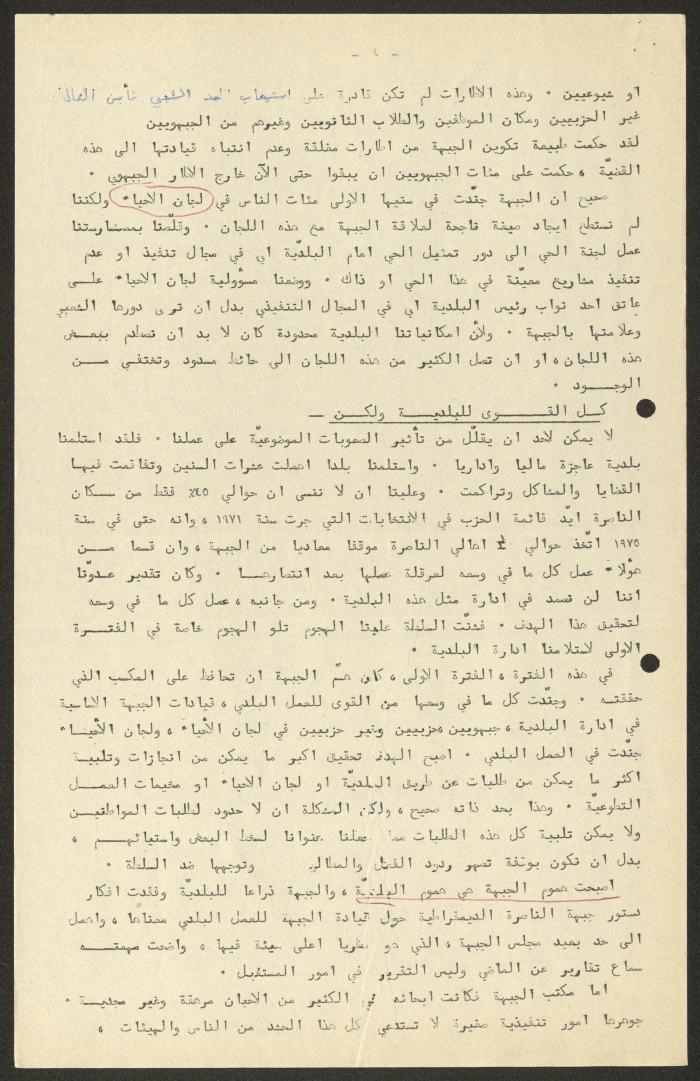 - ٤ -
او شيوعيين ٠ وهذه الاطارات لم تكن قادرة على استيعاب المد الشعبي
غير الحزبيين ومكان الموظفين والطلاب الثانويين وغيرهم من الجبهويين
لقد حكمت طبيعة تكوين الجبهة من اطارات مغلقة وعدم انتباه قيادتها الى هذه
القضيّة ، حكمت على مئات الجبهويين ان يبقوا حتى الآن خارج الاطار الجبهوي ٠
صحيح ان الجبهة جنّدت في سنيها الاولى مئات الناس في لجان الاحياء ولكننا
لم نستطع ايجاد صيغة ناجحة لعلاقة الجبهة مع هذه اللجان ٠ وقلّصنا بممارستنا
عمل لجنة الحي الى دور تمثيل الحي امام البلديّة اي في مجال تنفيذ او عدم
تنفيذ مشاريع معيّنة في هذا الحي او ذاك ٠ ووضعنا مسؤولية لجان الاحياء علـى
عاتق احد نواب رئيس البلدية اي في المجال التنفيذي بدل ان نرى دورها الشعبي
وعلاقتها بالجبهة ٠ ولأن امكانياتنا البلدية محدودة كان لا بد ان نصطدم ببعـض
هذه اللجان ، او ان تصل الكثير من هذه اللجان الى حائط مسدود وتختفي مـن
الوجـود ٠
كـل القـــوى للبلديـــة ولكـن ــ
لا يمكن لاحد ان يقلّل من تأثير الصعوبات الموضوعيّة على عملنا ٠ فلقد استلمنا
بلدية عاجزة ماليا واداريا ٠ واستلمنا بلدا اهملت عشرات السنين وتفاقمت فيهـا
القضايا والمشاكل وتراكمت ٠ وعلينا ان لا ننسى ان حوالي ٤٥٪ فقط من سـكان
الناصرة ايّد قائمة الحزب في الانتخابات التي جرت سنة ١٩٧١ ، وانه حتى في سنة
١٩٧٥ اتّخذ حوالي اهالي الناصرة موقفا معاديا من الجبهة ، وان قسما مــن
هؤلاء عمل كل ما في وسعه لعرقلة عملها بعد انتصارهـا ٠ وكان تقدير عـدوّنا
اننا لن نصمد في ادارة مثل هذه البلدية ٠ ومن جانبه ، عمل كل ما في وسعه
لتحقيق هذا الهدف ٠ فشنّت السلطة علينا الهجوم تلو الهجوم خاصة في الفتـرة
الاولى لاستلامنا ادارة البلدية ٠
في هذه الفترة ، الفترة الاولى ، كان همّ الجبهة ان تحافظ على المكسب الذي
حققته ٠ وجنّدت كل ما في وسعها من القوى للعمل البلدي ، قيادات الجبهة الاساسية
في ادارة البلدية ، جبهويين حزبيين وغير حزبيين في لجان الأحياء ، ولجان الأحيـاء
جنّدت في العمل البلدي ٠ اصبح الهدف تحقيق اكبر ما يمكن من انجازات وتلبيـة
اكثر ما يمكن من طلبات عن طريق البلديّة او لجان الاحياء او مخيمات العمـل
التطوعيّة ٠ وهذا بحد ذاته صحيح ، ولكن المشكلة ان لا حدود لطلبات المواطنيـن
ولا يمكن تلبية كل هذه الطلبات مما جعلنا عنوانا لسخط البعض واستيائهـم ،
بدل ان نكون بوتقة تصهر ردود الفعل والمطالب وتوجهها ضد السلطة ٠
اصبحت هموم الجبهة هي هموم البلديّة ، والجبهة ذراعا للبلديّة وفقدت افكار
دستور جبهة الناصرة الديمقراطية حول قيادة الجبهة للعمل البلدي معناها ، واهمل
الى حد بعيد مجلس الجبهة ، الذي هو نظريا اعلى هيئة فيها ، واضحت مهمتــه
سماع تقارير عن الماضي وليس التقرير في امور المستقبل ٠
اما مكتب الجبهة فكانت ابحاثه في الكثير من الاحيان مرهقة وغير مجديـة ٠
جوهرها امور تنفيذية صغيرة لا تستدعي كل هذا الحشد من الناس والهيئات ،